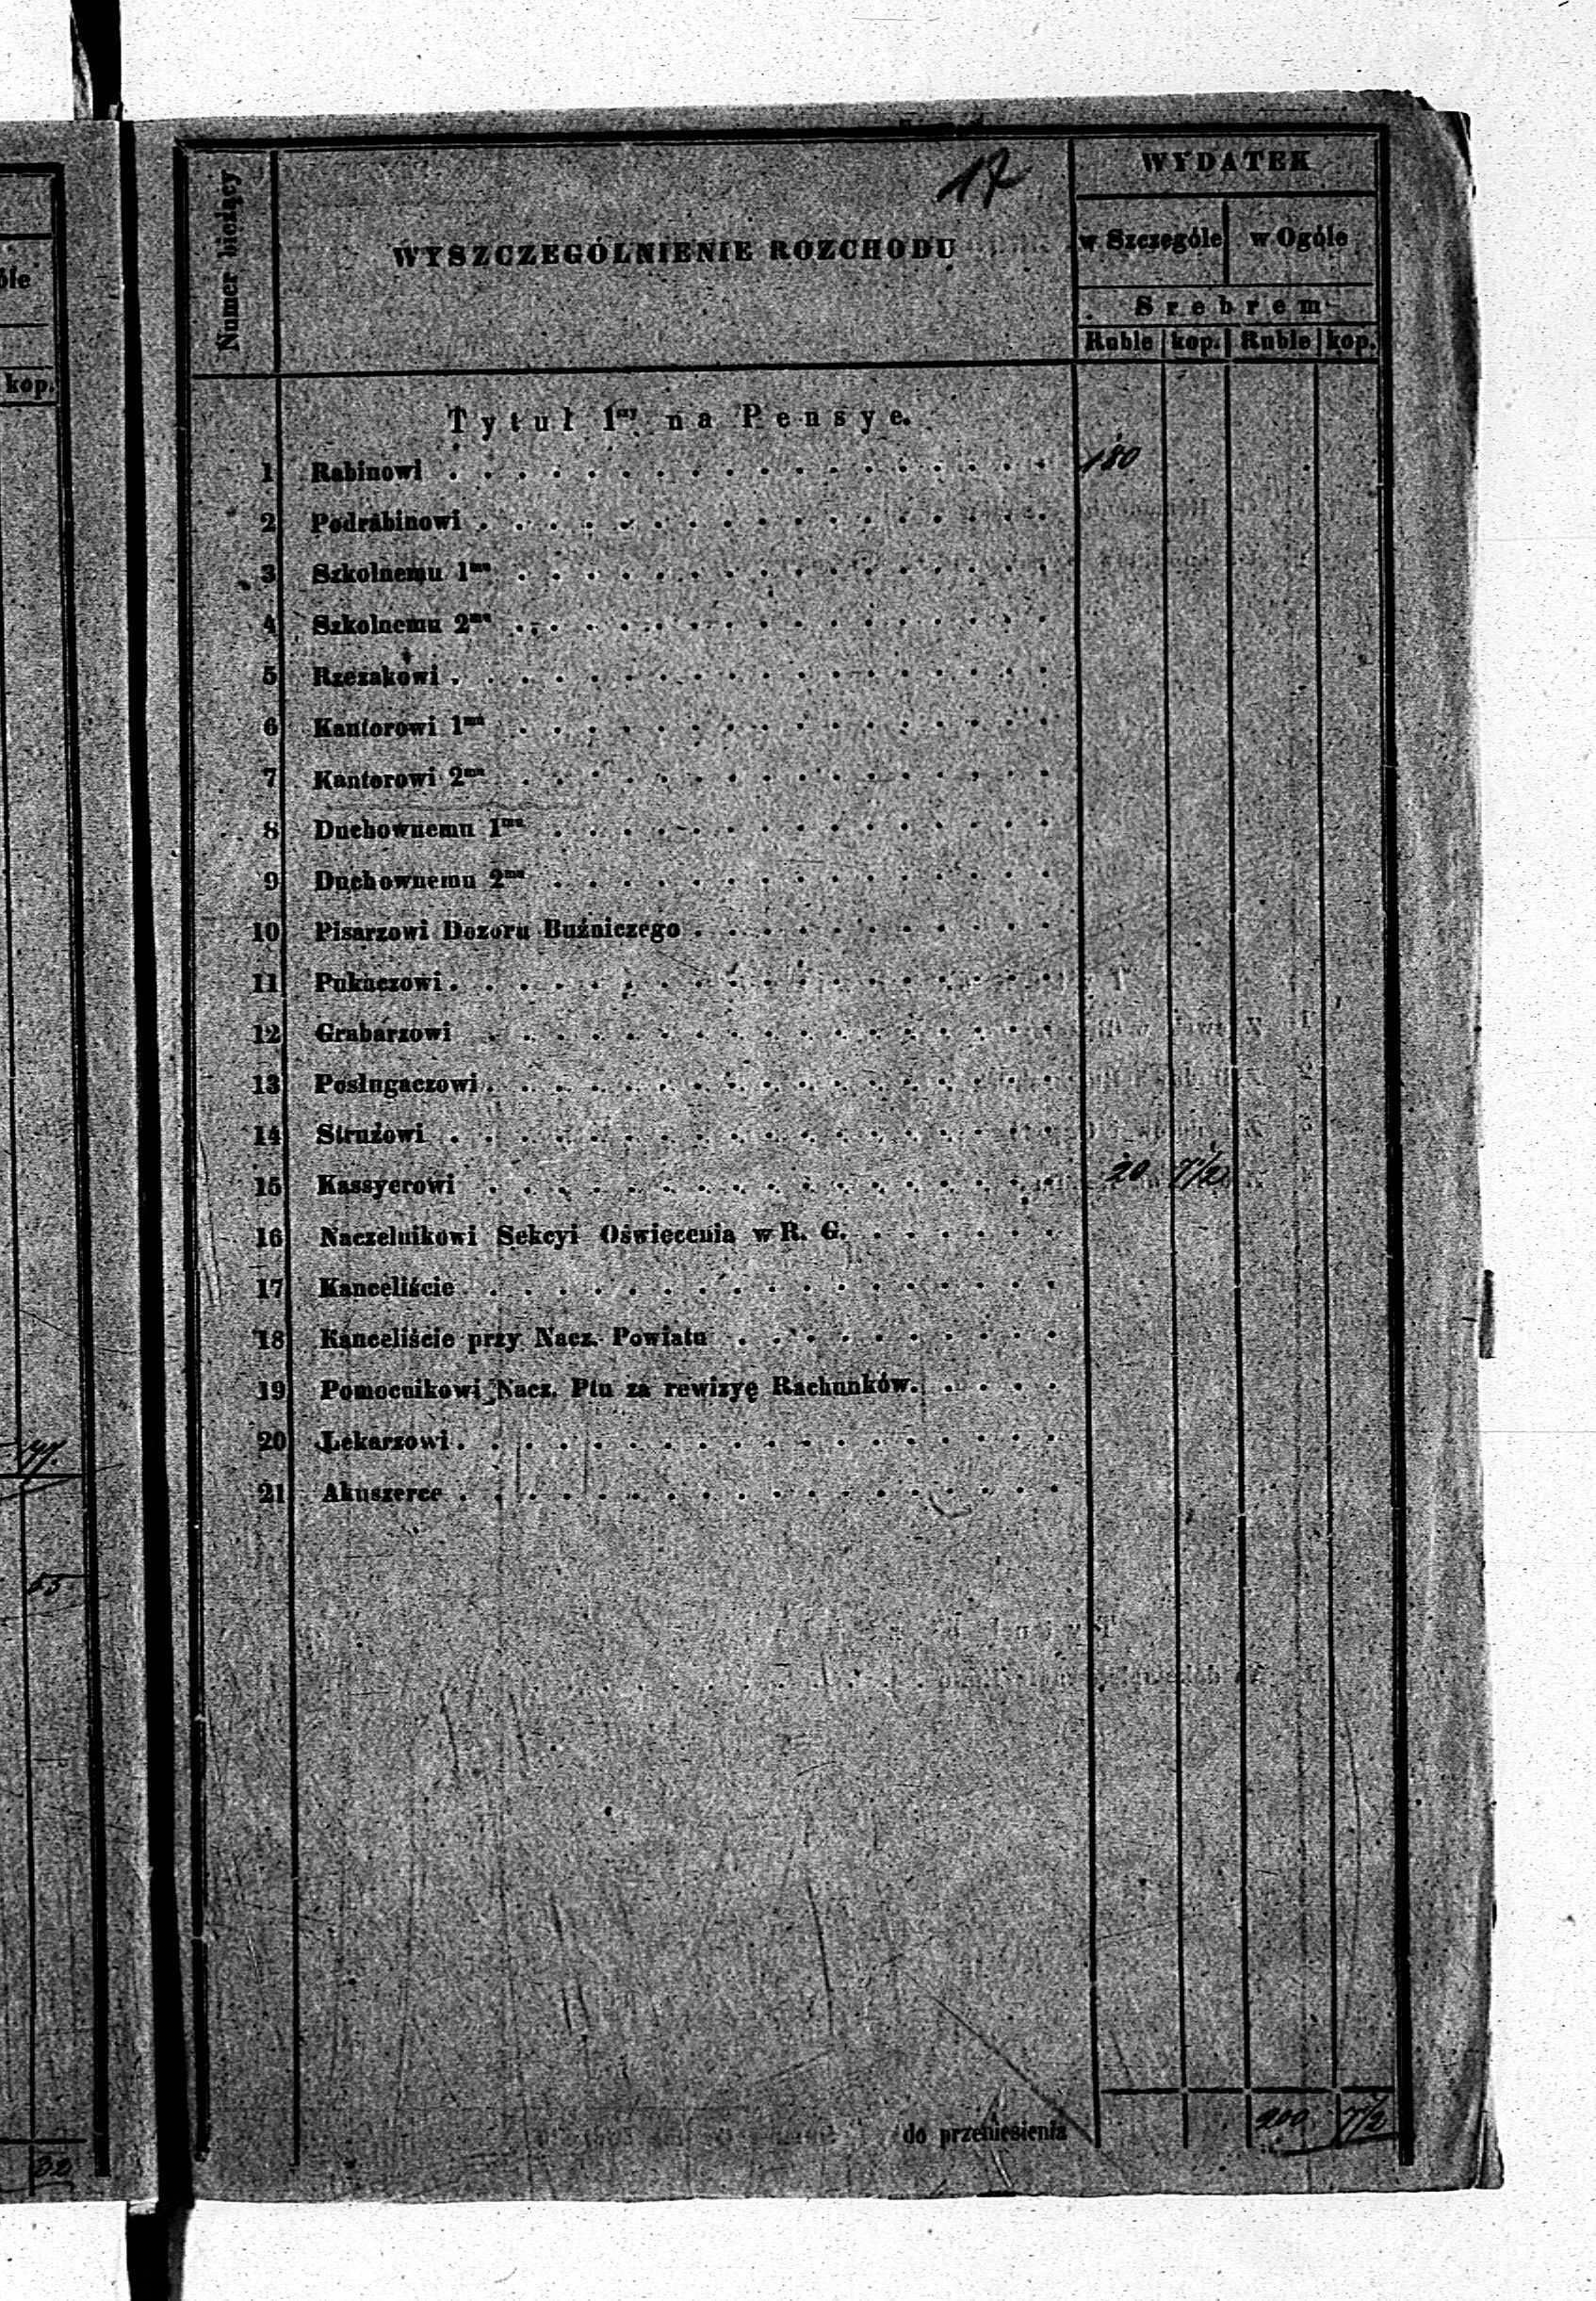 óle
kop.
47.
55
32
17
Numer bieżący
WYSZCZEGÓLNIENIE ROZCHODU
WYDATEK
w Szczególe w Ogóle
Srebrem
Ruble kop. Ruble kop.
Tytuł 1szy na Pensye.
1 Rabinowi 180
2 Podrabinowi
3 Szkolnemu 1mu
4 Szkolnemu 2mu
5 Rzezakowi
6 Kantorowi 1mu
7 Kantorowi 2mu
8 Duchownemu 1mu
9 Duchownemu 2mu
10 Pisarzowi Dozoru Bużniczego
11 Pukaczowi
12 Grabarzowi
13 Posługaczowi
14 Stružowi
15 Kassyerowi 20 7 1/2
16 Naczelnikowi Sekcyi Oświecenia w R. G.
17 Kanceliście
18 Kanceliście przy Nacz. Powiatu
19 Pomocnikowi Nacz. Ptu za rewizyę Rachunków.
20 Lekarzowi
21 Akuszerce
do przeniesienia 200 7 1/2